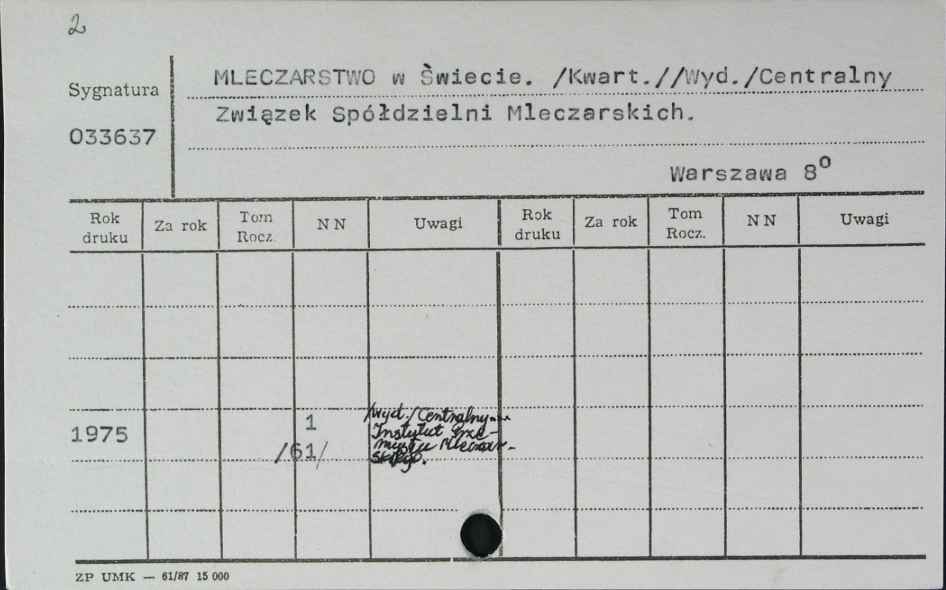 2
Sygnatura
033637
MLECZARSTWO w Świecie. /Kwart.//Wyd./Centralny
Związek Spółdzielni Mleczarskich.
Warszawa 8⁰
Rok druku Za rok Tom Rocz. N N Uwagi Rok druku Za rok Tom Rocz. N N Uwagi
1975 1 /61/ /wyd./Centralny
Instytut Prze-
mysłu Mleczar-
skiego.
ZP UMK — 61/87 15 000